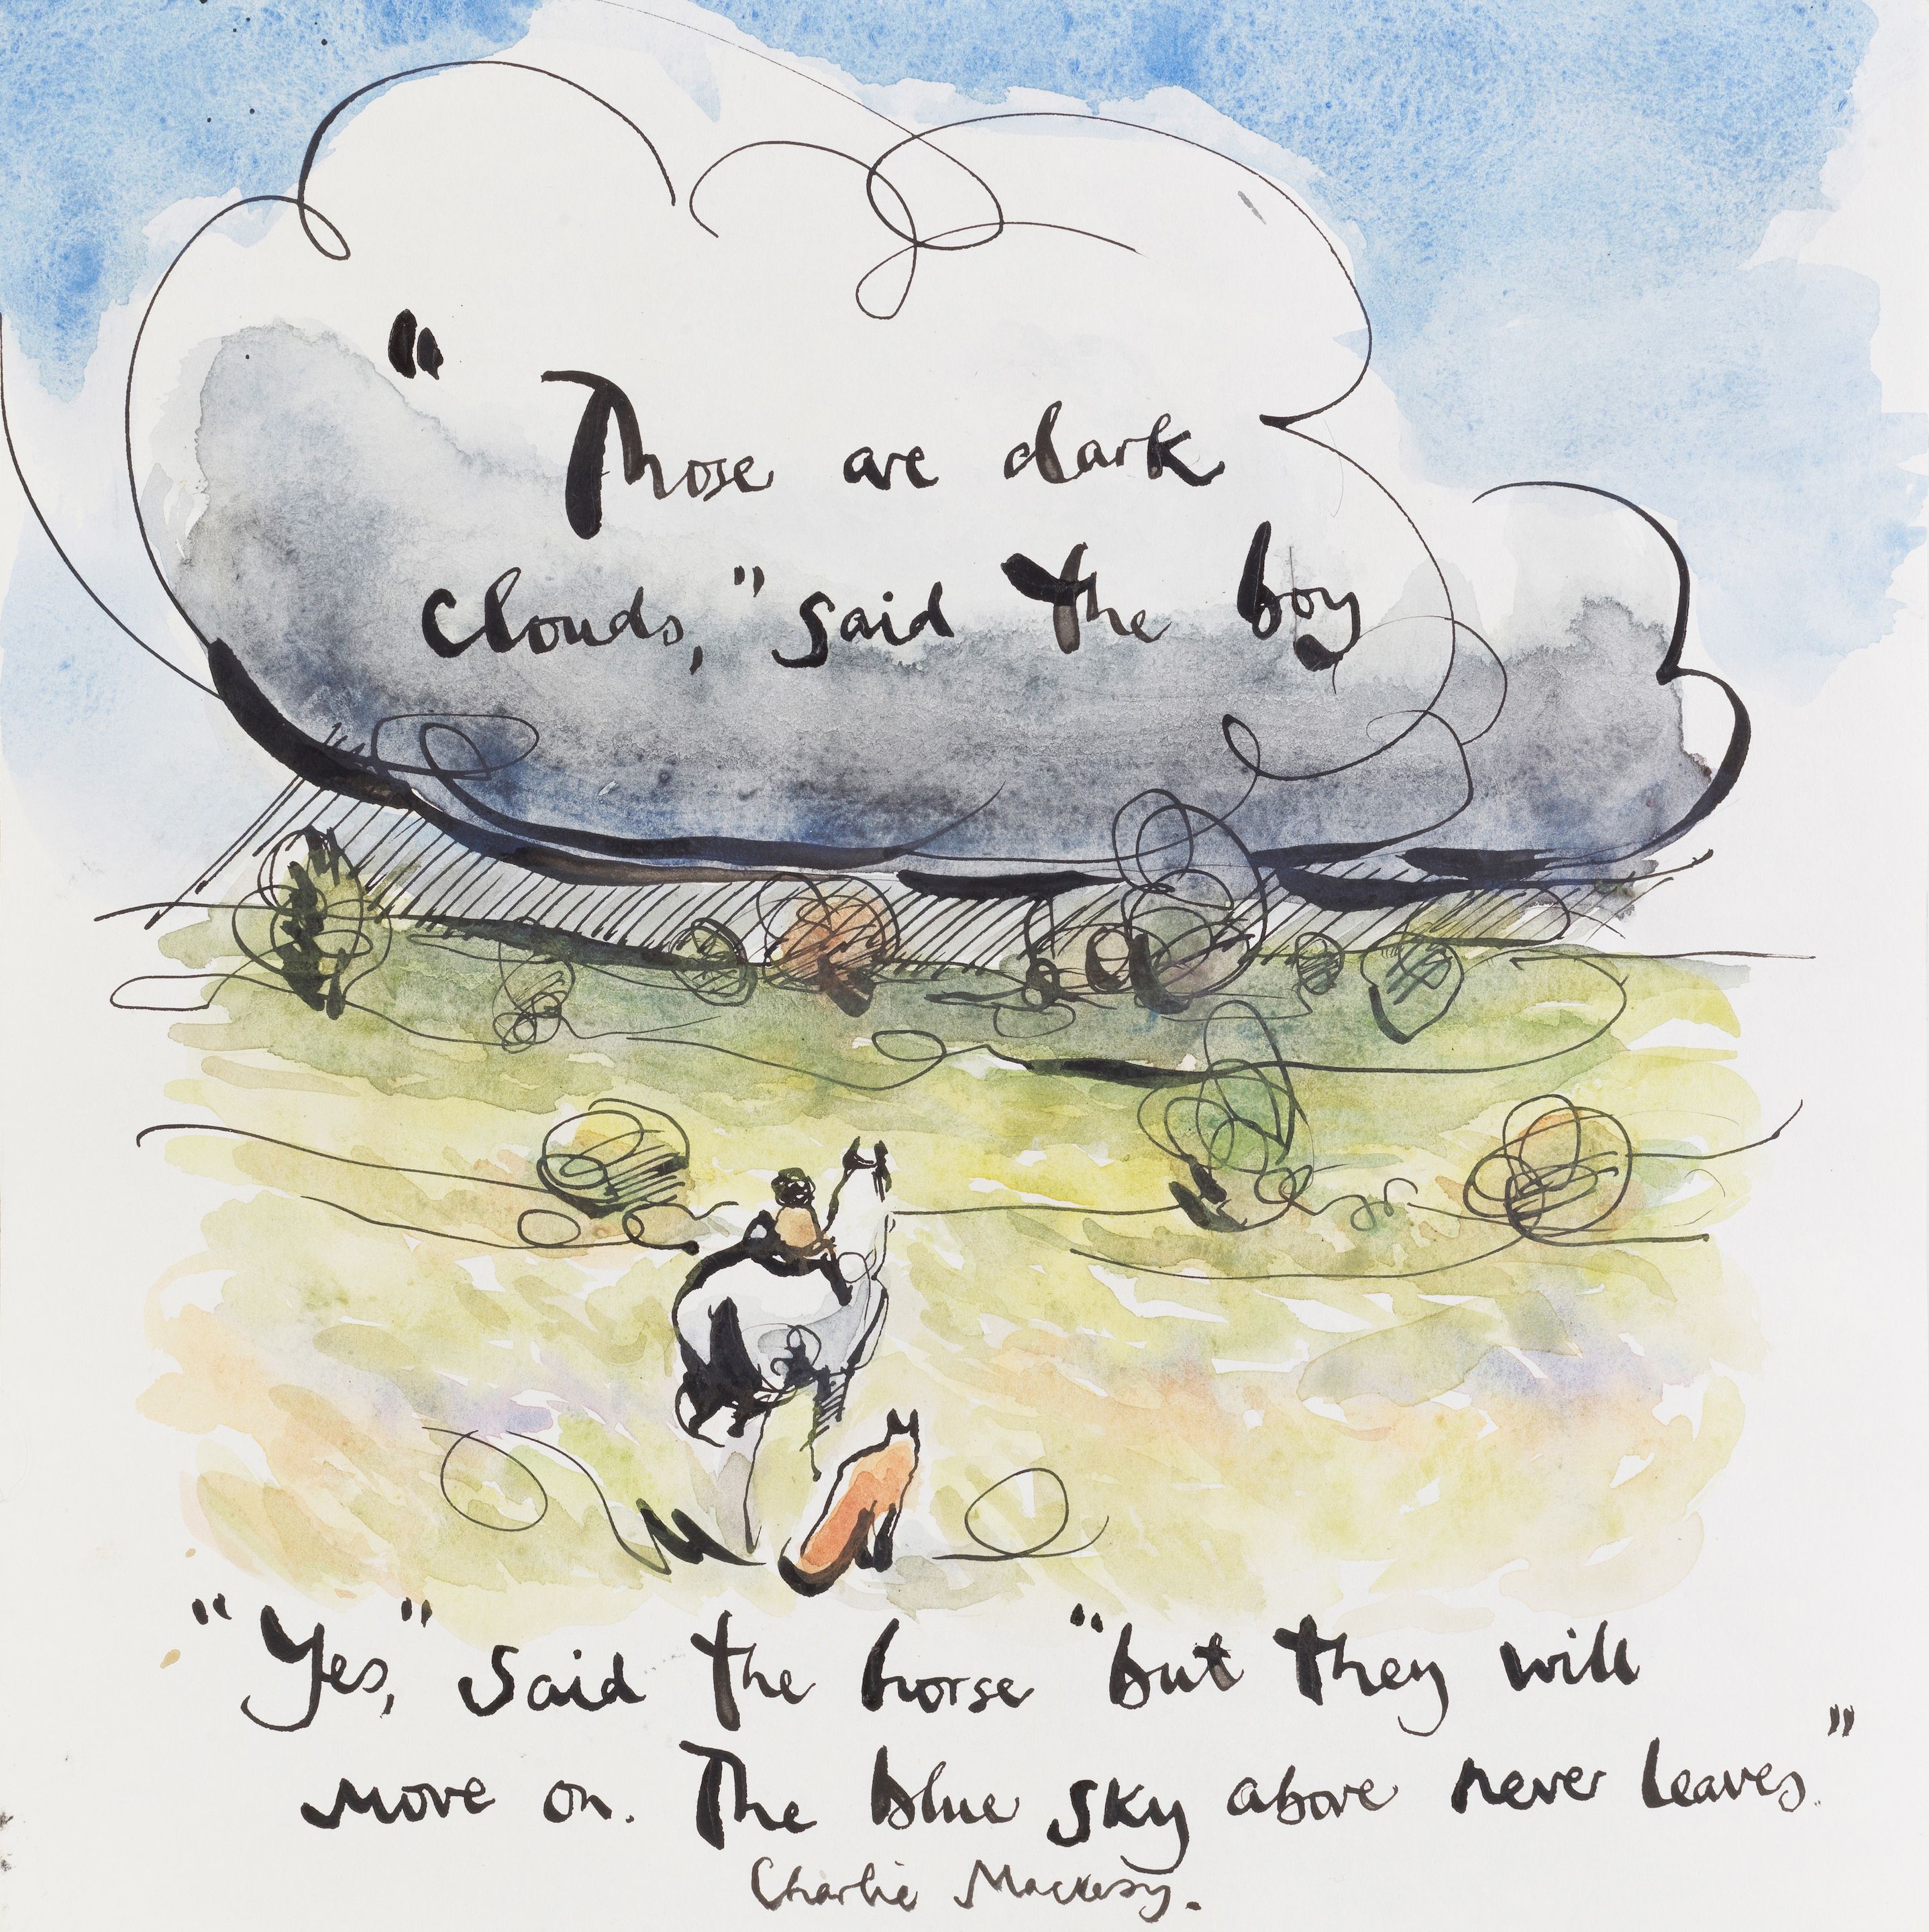 "Those are dark
clouds," said the boy
"Yes," said the horse "but they will
move on. The blue sky above never leaves."
Charlie Mackesy.